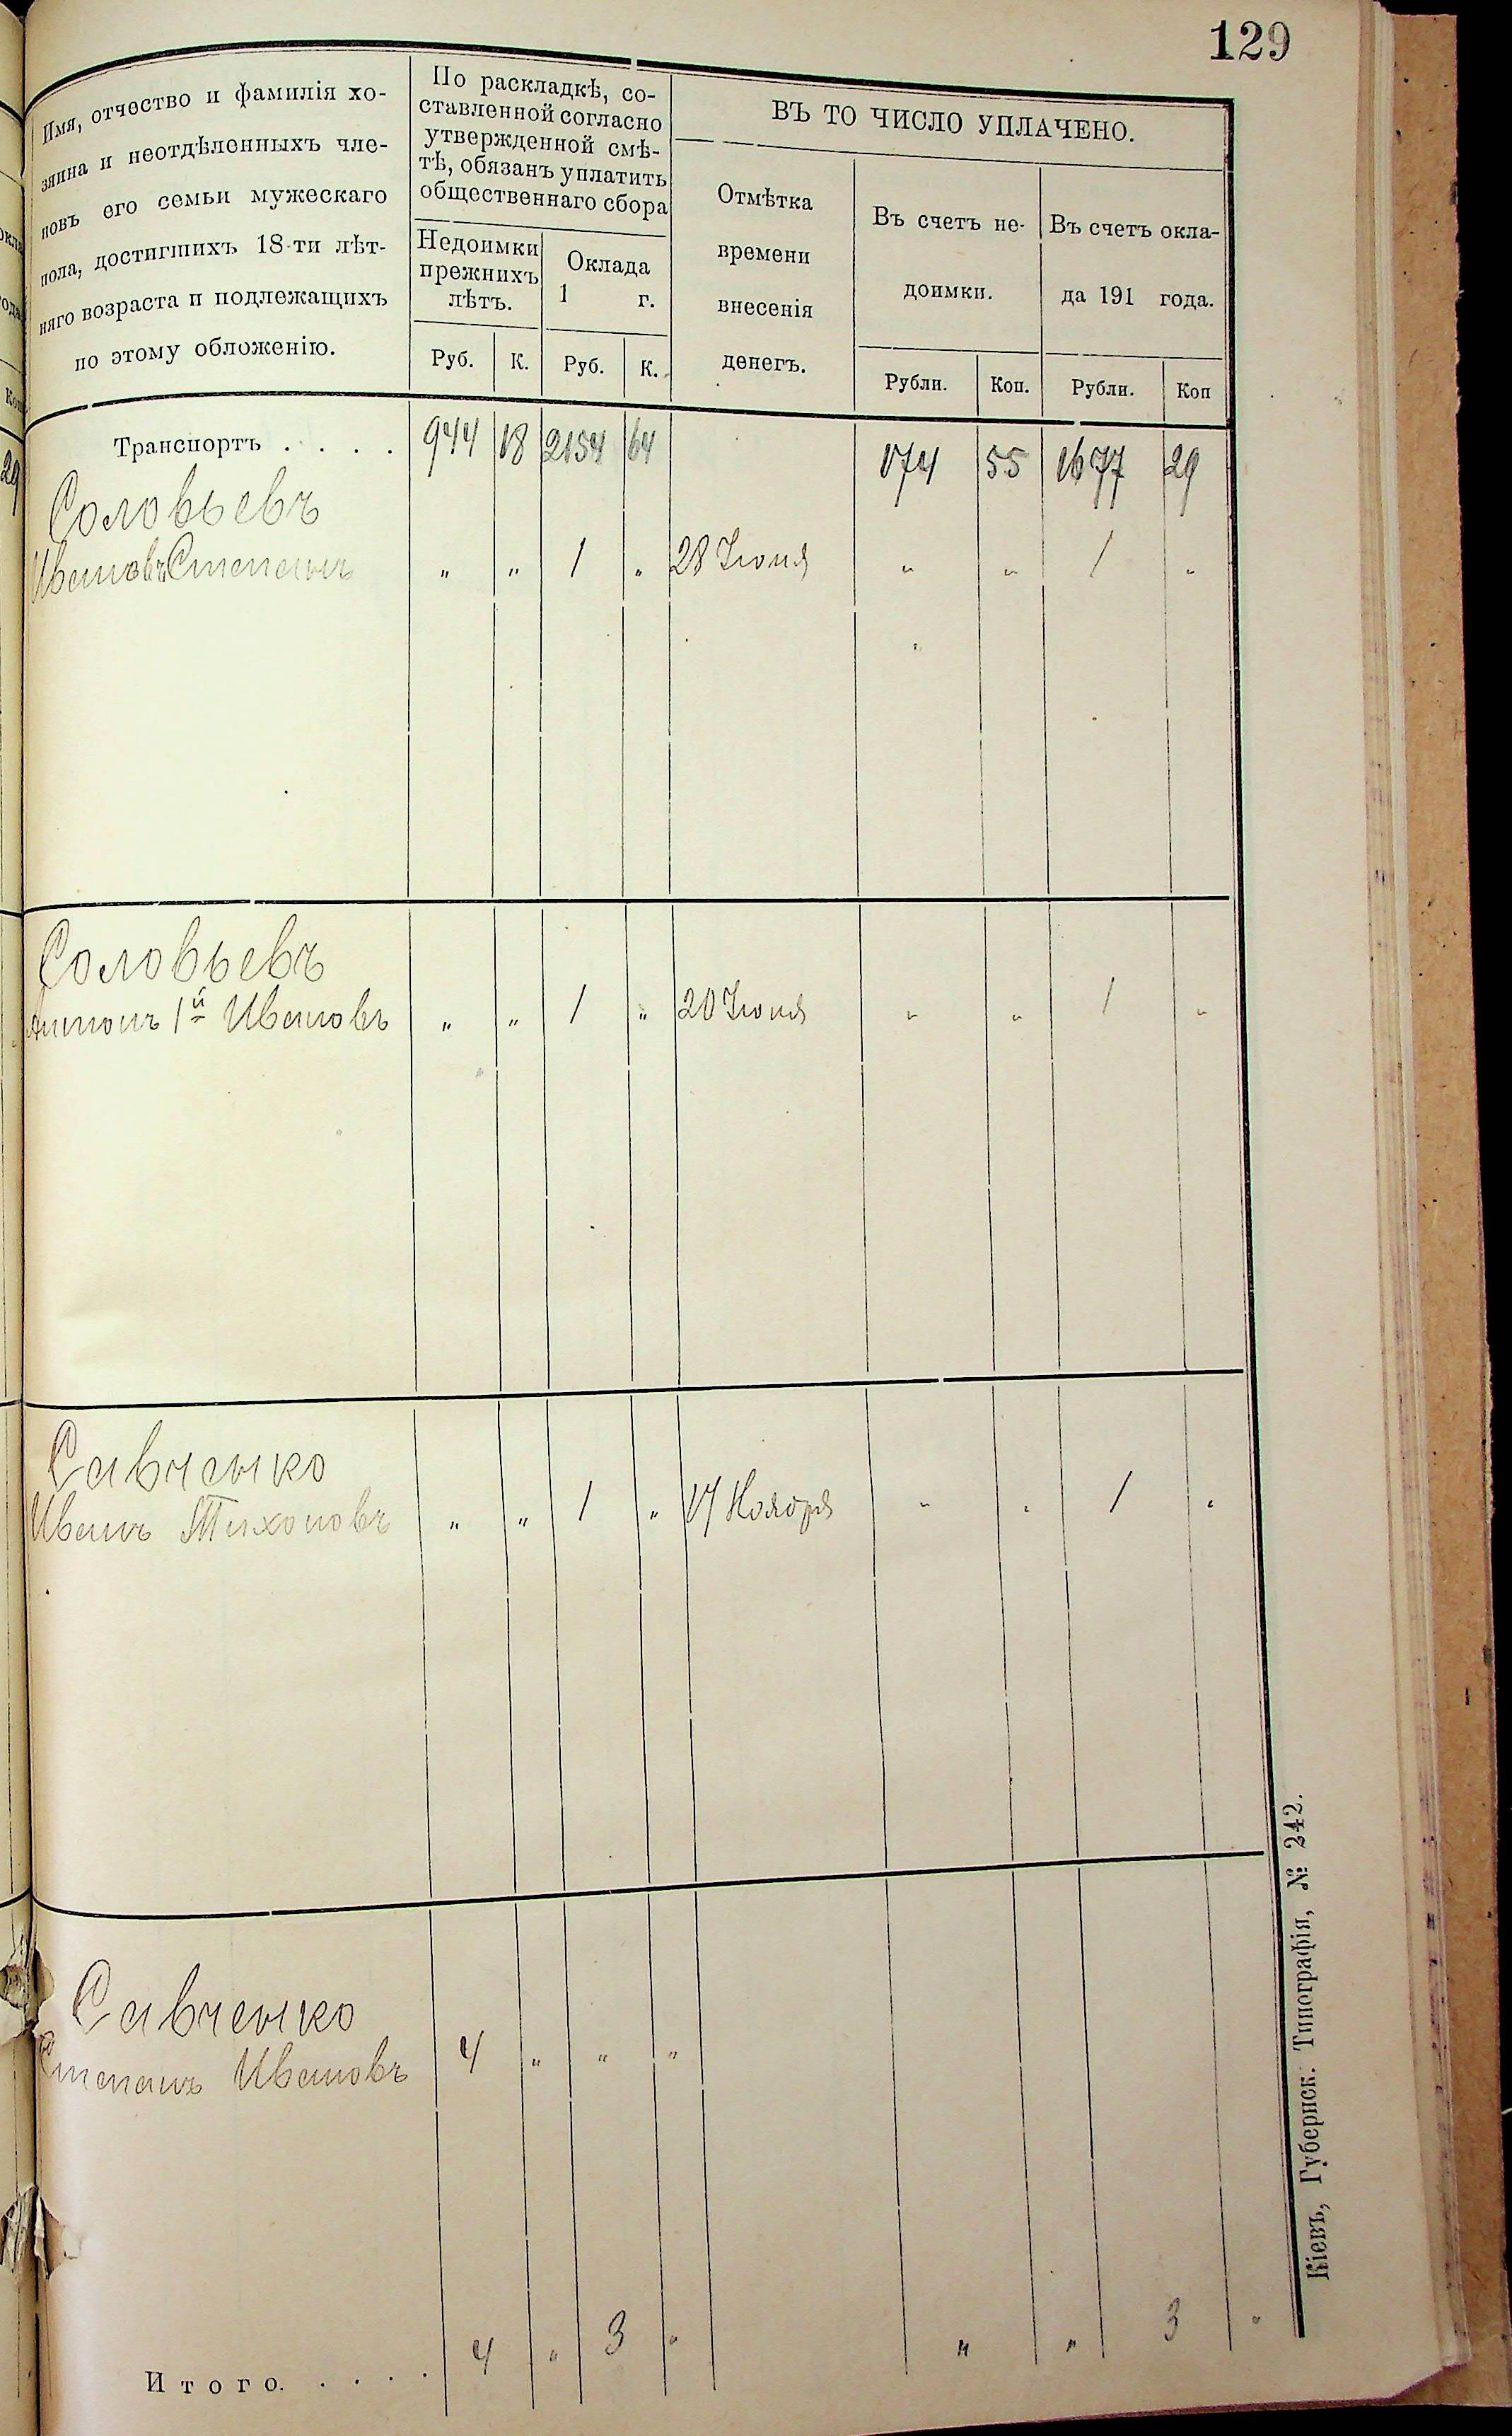 129
Имя, отчество и фамилія хо-
зяина и неотдѣленныхъ чле-
новъ его семьи мужескаго
пола, достигшихъ 18-ти лѣт-
няго возраста и подлежащихъ
по этому обложенію.
По раскладкѣ, со-
ставленной согласно
утвержденной смѣ-
тѣ, обязанъ уплатить
общественнаго сбора
Недоимки
прежнихъ
лѣтъ.
Оклада
1 г.
Руб. К. Руб. К.
ВЪ ТО ЧИСЛО УПЛАЧЕНО.
Отмѣтка
времени
внесенія
денегъ.
Въ счетъ не-
доимки.
Въ счетъ окла-
да 191 года.
Рубли. Коп. Рубли. Коп
Транспортъ . . . . 944 18 2154 64 174 55 1677 29
Соловьевъ
Ивановъ Степанъ " " 1 " 28 Іюня " " 1 "
Соловьевъ
Антонъ 1й Ивановъ " " 1 " 20 Іюня " " 1 "
Савченко
Иванъ Тихоновъ " " 1 " 17 Ноября " " 1 "
Савченко
Степанъ Ивановъ 4 " " "
Итого. . . . . 4 " 3 " " " 3 "
Кіевъ, Губернск. Типографія, № 242.